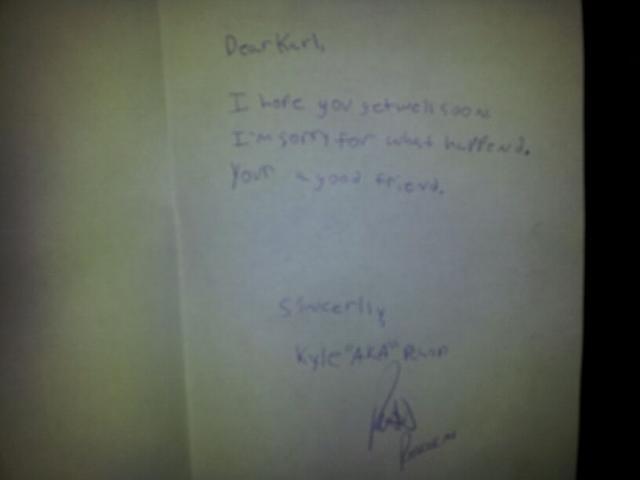 Dear Karl,
I hope you getwell soon
I'm sorry for what happend.
Your a good friend.
Sincerlly
Kyle "AKA"